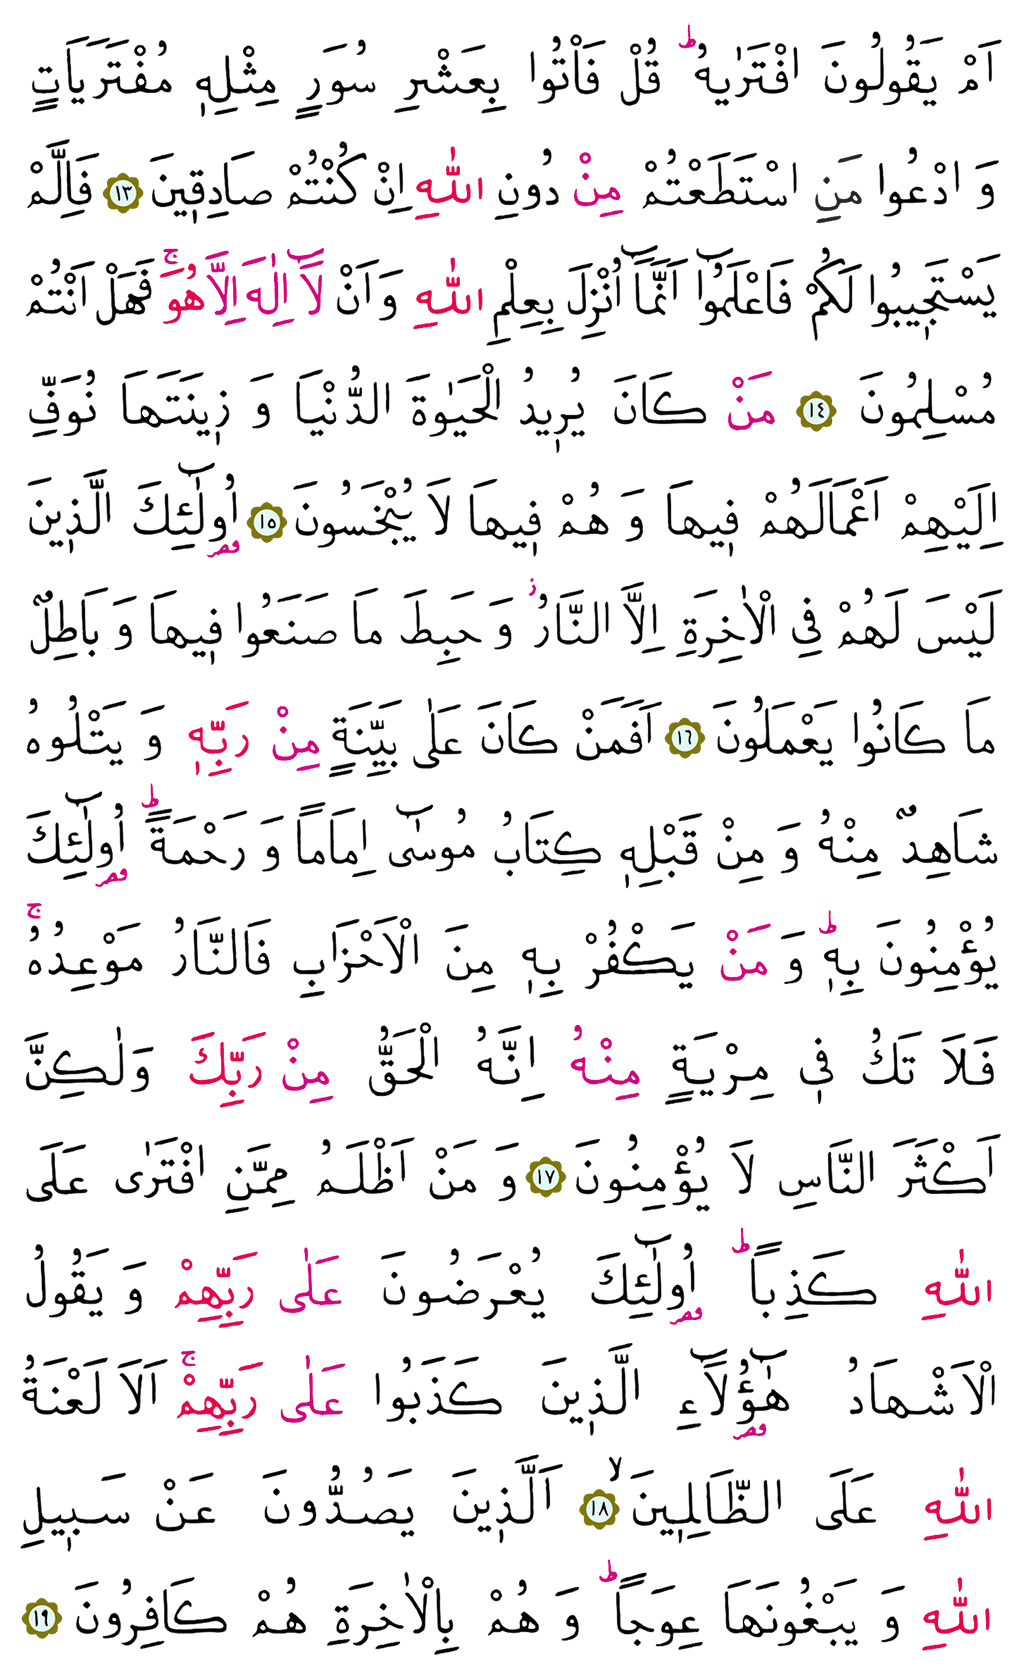 اَمْ يَقُولُونَ افْتَرٰيهُ ۜؕ قُلْ فَأْتُوا بِعَشْرِ سُوَرٍ مِثْلِه۪ مُفْتَرَيَاتٍ
وَ ادْعُوا مَنِ اسْتَطَعْتُمْ مِنْ دُونِ اللّٰهِ اِنْ كُنْتُمْ صَادِق۪ينَ ﴿١٣﴾ فَاِلَّمْ
يَسْتَج۪يبُوا لَكُمْ فَاعْلَمُٓوا اَنَّمَٓا اُنْزِلَ بِعِلْمِ اللّٰهِ وَاَنْ لَٓا اِلٰهَ اِلَّا هُوَۚ فَهَلْ اَنْتُمْ
مُسْلِمُونَ ﴿١٤﴾ مَنْ كَانَ يُر۪يدُ الْحَيٰوةَ الدُّنْيَا وَ ز۪ينَتَهَا نُوَفِّ
اِلَيْهِمْ اَعْمَالَهُمْ ف۪يهَا وَ هُمْ ف۪يهَا لَا يُبْخَسُونَ ﴿١٥﴾ اُولٰٓئِكَ الَّذ۪ينَ
لَيْسَ لَهُمْ فِي الْاٰخِرَةِ اِلَّا النَّارُؗ وَ حَبِطَ مَا صَنَعُوا ف۪يهَا وَ بَاطِلٌ
مَا كَانُوا يَعْمَلُونَ ﴿١٦﴾ اَفَمَنْ كَانَ عَلٰى بَيِّنَةٍ مِنْ رَبِّه۪ وَ يَتْلُوهُ
شَاهِدٌ مِنْهُ وَ مِنْ قَبْلِه۪ كِتَابُ مُوسٰٓى اِمَاماً وَ رَحْمَةًؕ اُولٰٓئِكَ
يُؤْمِنُونَ بِه۪ؕ وَ مَنْ يَكْفُرْ بِه۪ مِنَ الْاَحْزَابِ فَالنَّارُ مَوْعِدُهُۚ
فَلَا تَكُ ف۪ي مِرْيَةٍ مِنْهُ اِنَّهُ الْحَقُّ مِنْ رَبِّكَ وَلٰكِنَّ
اَكْثَرَ النَّاسِ لَا يُؤْمِنُونَ ﴿١٧﴾ وَ مَنْ اَظْلَمُ مِمَّنِ افْتَرٰى عَلَى
اللّٰهِ كَذِباًؕ اُولٰٓئِكَ يُعْرَضُونَ عَلٰى رَبِّهِمْ وَ يَقُولُ
الْاَشْهَادُ هٰٓؤُ۬لَٓاءِ الَّذ۪ينَ كَذَبُوا عَلٰى رَبِّهِمْۚ اَلَا لَعْنَةُ
اللّٰهِ عَلَى الظَّالِم۪ينَۙ ﴿١٨﴾ اَلَّذ۪ينَ يَصُدُّونَ عَنْ سَب۪يلِ
اللّٰهِ وَ يَبْغُونَهَا عِوَجاًؕ وَ هُمْ بِالْاٰخِرَةِ هُمْ كَافِرُونَ ﴿١٩﴾